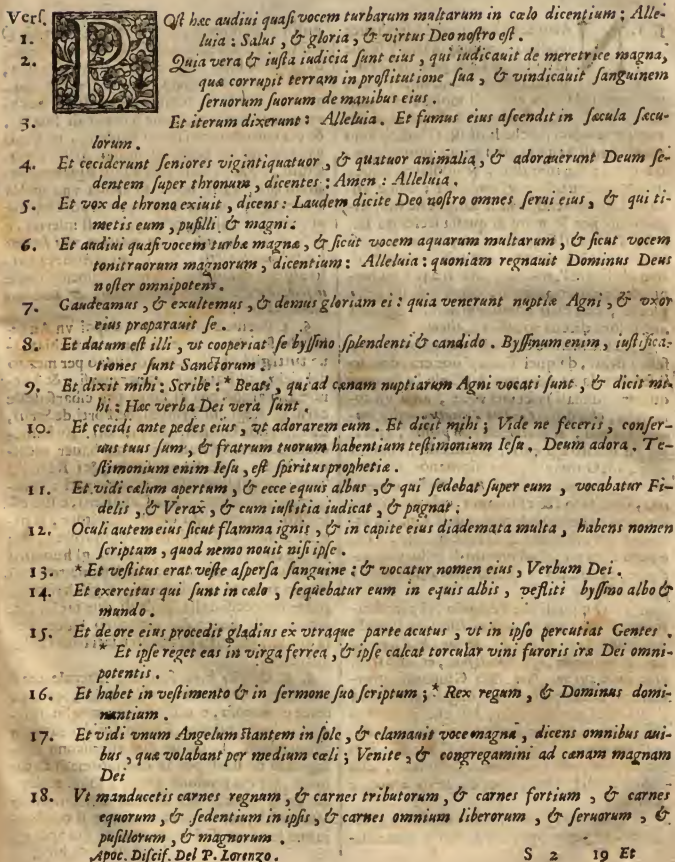 Vers. POst hæc audiui quasi vocem turbarum multarum in cœlo dicentium; Alle-
1. luia: Salus, & gloria, & virtus Deo nostro est.
2. Quia vera & iusta iudicia sunt eius, qui iudicauit de meretrice magna,
quæ corrupit terram in prostitutione sua, & vindicauit sanguinem
seruorum suorum de manibus eius.
3. Et iterum dixerunt: Alleluia. Et fumus eius ascendit in sæcula sæcu-
lorum.
4. Et ceciderunt seniores vigintiquatuor, & quatuor animalia, & adorauerunt Deum se-
dentem super thronum, dicentes; Amen: Alleluia.
5. Et vox de throno exiuit, dicens: Laudem dicite Deo nostro omnes serui eius, & qui ti-
metis eum, pusilli & magni.
6. Et audiui quasi vocem turbæ magnæ, & sicut vocem aquarum multarum, & sicut vocem
tonitruorum magnorum, dicentium: Alleluia: quoniam regnauit Dominus Deus
noster omnipotens.
7. Gaudeamus, & exultemus, & demus gloriam ei: quia venerunt nuptiæ Agni, & vxor
eius præparauit se.
8. Et datum est illi, vt cooperiat se byssino splendenti & candido. Byssinum enim, iustifica-
tiones sunt Sanctorum.
9. Et dixit mihi: Scribe: * Beati, qui ad cœnam nuptiarum Agni vocati sunt, & dicit mi-
hi: Hæc verba Dei vera sunt.
10. Et cecidi ante pedes eius, vt adorarem eum. Et dicit mihi; Vide ne feceris, conser-
uus tuus sum, & fratrum tuorum habentium testimonium Iesu. Deum adora. Te-
stimonium enim Iesu, est spiritus prophetiæ.
11. Et vidi cælum apertum, & ecce equus albus, & qui sedebat super eum, vocabatur Fi-
delis, & Verax, & cum iustitia iudicat, & pugnat.
12. Oculi autem eius sicut flamma ignis, & in capite eius diademata multa, habens nomen
scriptum, quod nemo nouit nisi ipse.
13. * Et vestitus erat veste aspersa sanguine: & vocatur nomen eius, Verbum Dei.
14. Et exercitus qui sunt in cælo, sequebatur eum in equis albis, vestiti byssino albo &
mundo.
15. Et de ore eius procedit gladius ex vtraque parte acutus, vt in ipso percutiat Gentes.
* Et ipse reget eas in virga ferrea, & ipse calcat torcular vini furoris iræ Dei omni-
potentis.
16. Et habet in vestimento & in femore suo scriptum; * Rex regum, & Dominus domi-
nantium.
17. Et vidi vnum Angelum stantem in sole, & clamauit voce magna, dicens omnibus aui-
bus, quæ volabant per medium cæli; Venite, & congregamini ad cœnam magnam
Dei
18. Vt manducetis carnes regnum, & carnes tributorum, & carnes fortium, & carnes
equorum, & sedentium in ipsis, & carnes omnium liberorum, & seruorum, &
pusillorum, & magnorum.
Apoc. Discif. Del P. Lorenzo. S 2 19 Et